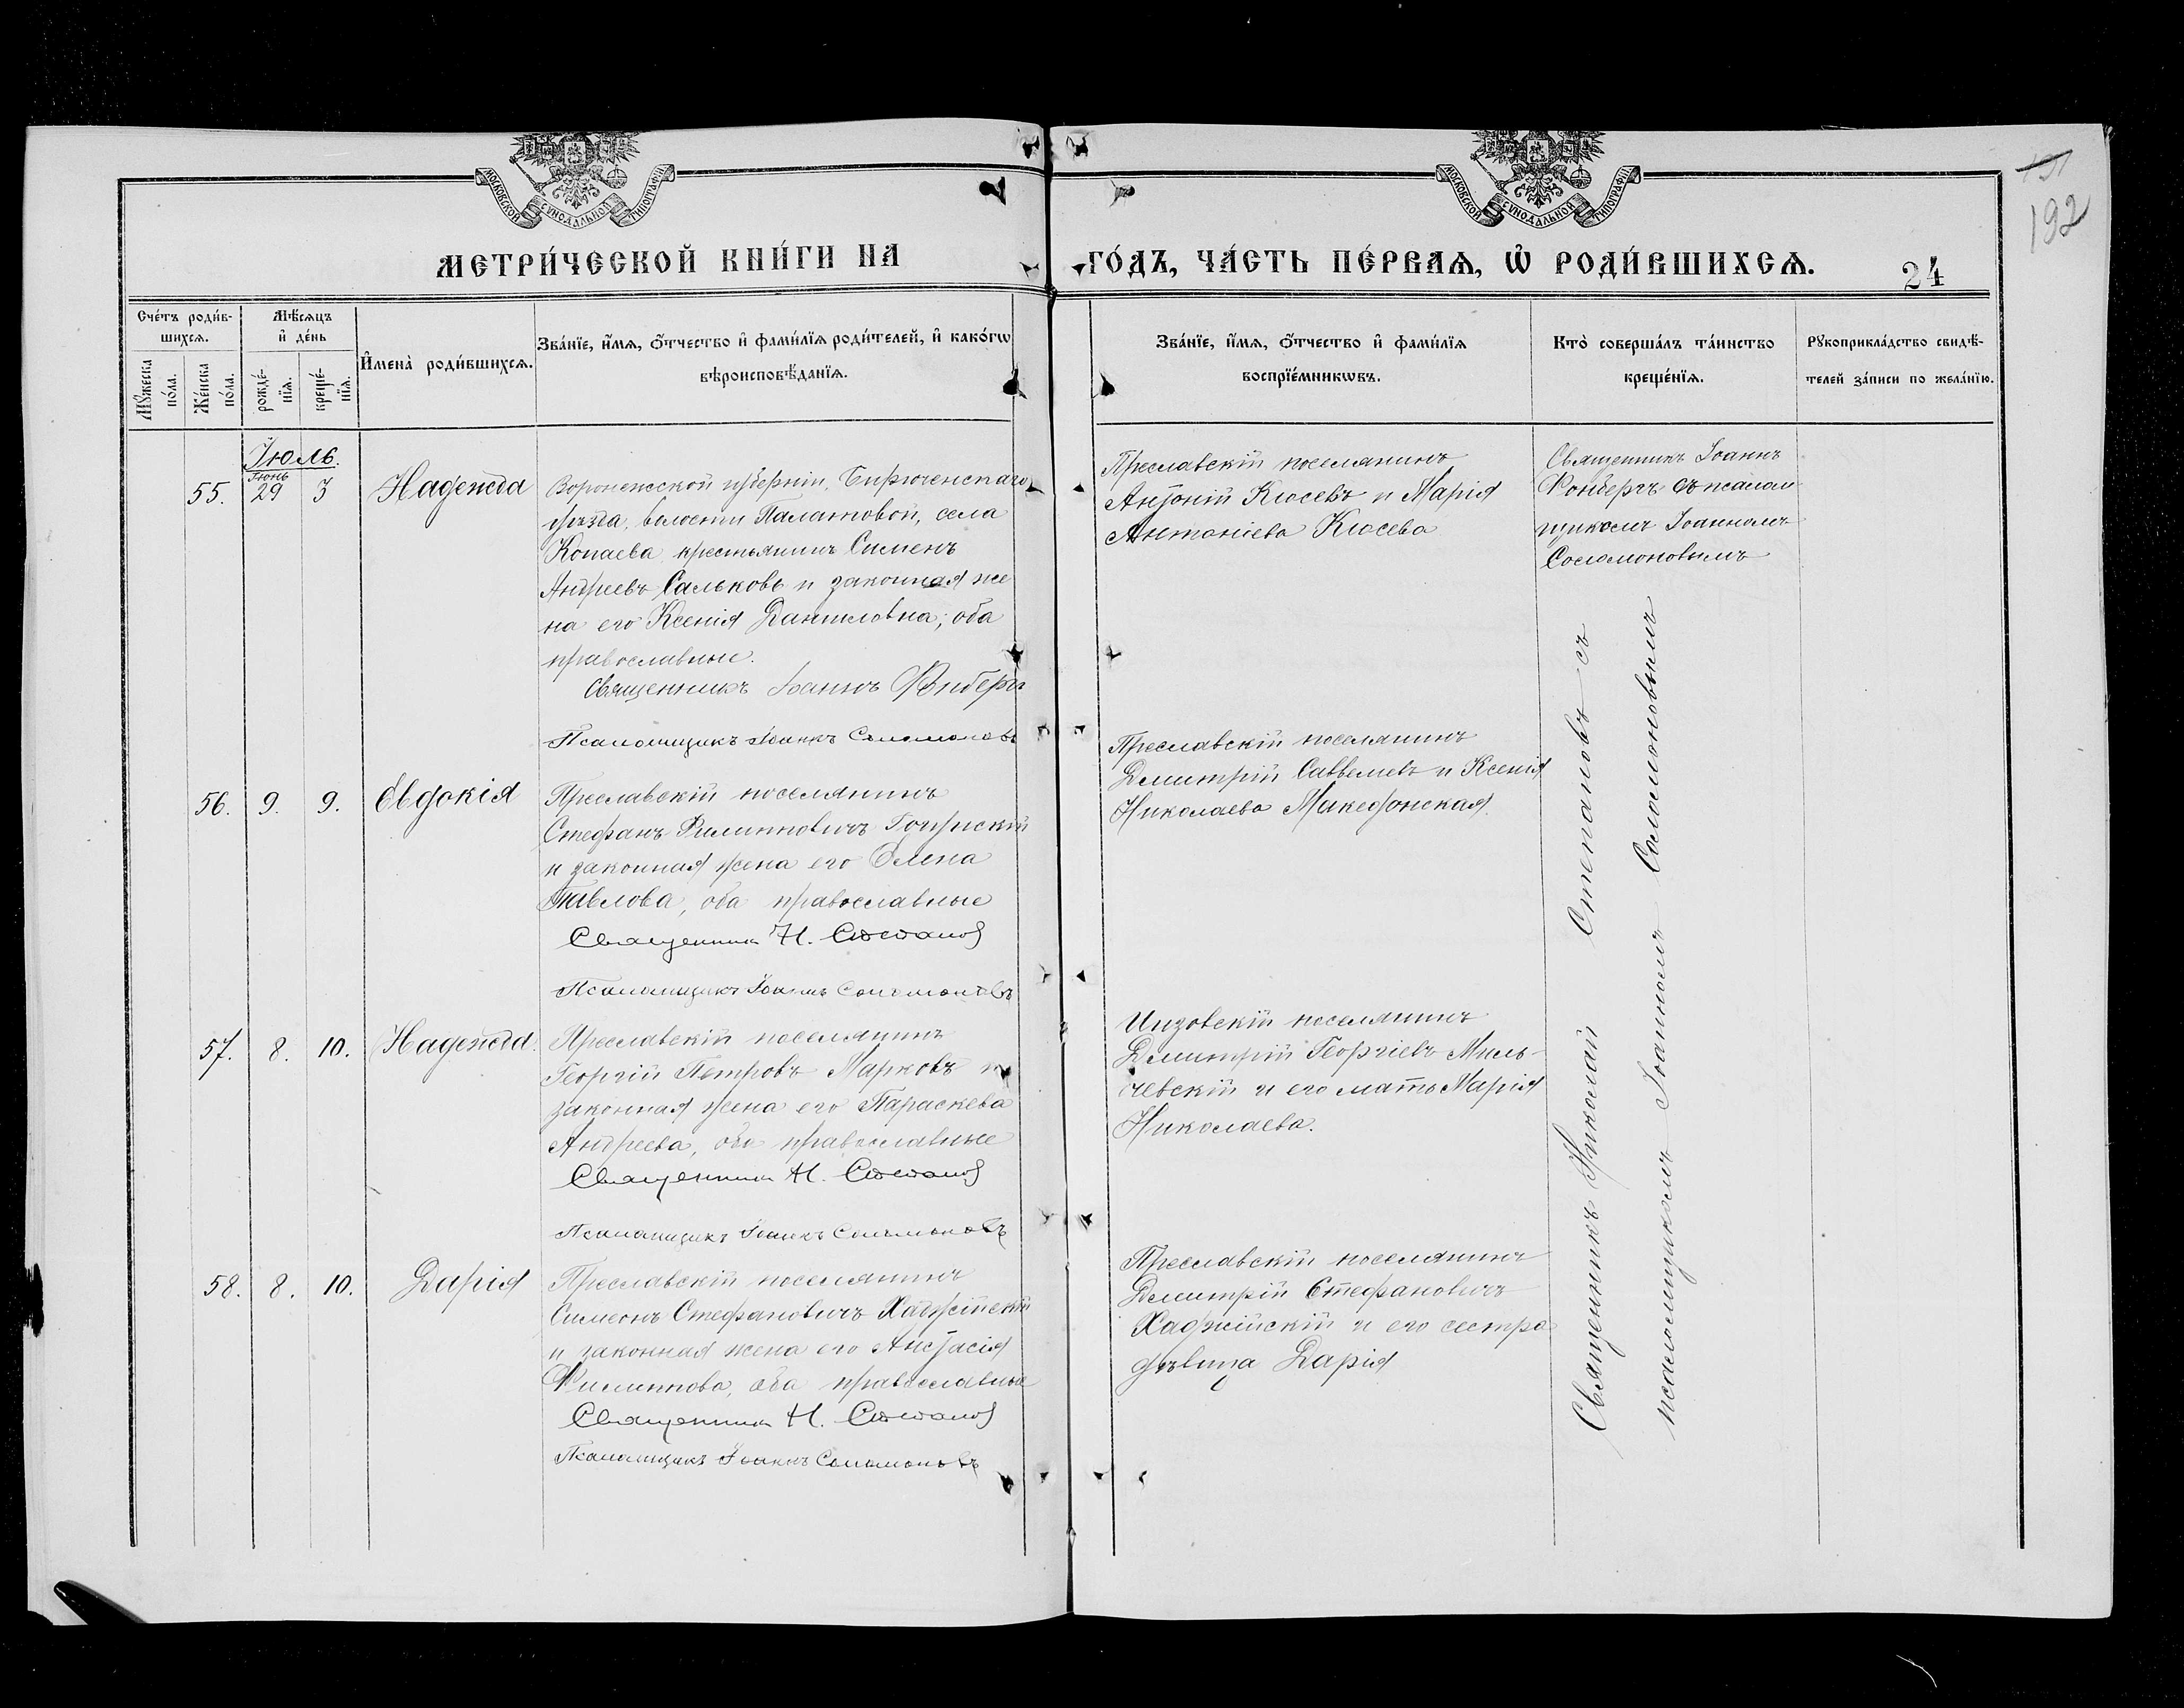 МОСКОВСКОЙ СѴНОДАЛЬНОЙ ТИПОГРАФІИ
МОСКОВСКОЙ СѴНОДАЛЬНОЙ ТИПОГРАФІИ
192
МЕТРИ́ЧЕСКОЙ КНИ́ГИ НА
ГО́ДЪ, ЧА́СТЬ ПЕ́РВАѦ, Ѡ҆ РОДИ́ВШИХСѦ.
24
Сче́тъ роди́в-
шихсѧ.
Мѣ́сѧцъ
и҆ де́нь
Мꙋ́жеска
по́ла.
Же́нска
по́ла.
рожде́-
нїѧ.
креще́-
нїѧ.
И҆мена̀ роди́вшихсѧ.
Зва́нїе, и҆́мѧ, ѻ҆́тчество и҆ фами́лїѧ роди́телей, и҆ како́гѡ
вѣроисповѣ́данїѧ.
Зва́нїе, и҆́мѧ, ѻ҆́тчество и҆ фами́лїѧ
воспрїе́мникѡвъ.
Кто̀ соверша́лъ та́инство
креще́нїѧ.
Рꙋкоприкла́дство свидѣ́-
телей за́писи по жела́нїю.
Іюль.
Іюнь
55.
29
3
Надежда
Воронежской губерніи, Бирюченскаго
уѣзда, волости Палатовой, села
Копаева крестьянинъ Сименъ
Андреевъ Сальковъ и законная же
на его Ксенія Даниловна; оба
православные.
Священникъ Іоаннъ Фонбергъ
Псаломщикъ Іоаннъ Соломоновъ
Преславскій поселянинъ
Антоній Клосевъ и Марія
Антоніева Клосева
Священникъ Іоаннъ
Фонбергъ съ псалом
щикомъ Іоанномъ
Соломоновымъ
56.
9.
9.
Евдокія
Преславскій поселянинъ
Стефанъ Филипповичъ
и законная жена его Елена
Павлова, оба православные
Священникъ Н. Степановъ
Псаломщикъ Іоаннъ Соломоновъ
Преславскій поселянинъ
Димитрій Саввелиевъ и Ксенія
Николаева Македонская.
57.
8.
10.
Надежда.
Преславскій поселянинъ
Георгій Петровъ Марковъ и
законная жена его Параскева
Андреева, оба православные
Священникъ Н. Степановъ
Псаломщикъ Іоаннъ Соломоновъ
Инзовскій поселянинъ
Димитрій Георгіевъ Миль-
чевскій и его мать Марія
Николаева.
58.
8.
10.
Дарія
Преславскій поселянинъ
Симеонъ Стефановичъ Хаджійскій
и законная жена его Анстасія
Филиппова, оба православные
Священникъ Н. Степановъ
Псаломщикъ Іоаннъ Соломоновъ
Преславскій поселянинъ
Димитрій Стефановичъ
Хаджійскій и его сестра
дѣвица Дарія
Священникъ Николай Степановъ съ
псаломщикомъ Іоанномъ Соломоновымъ